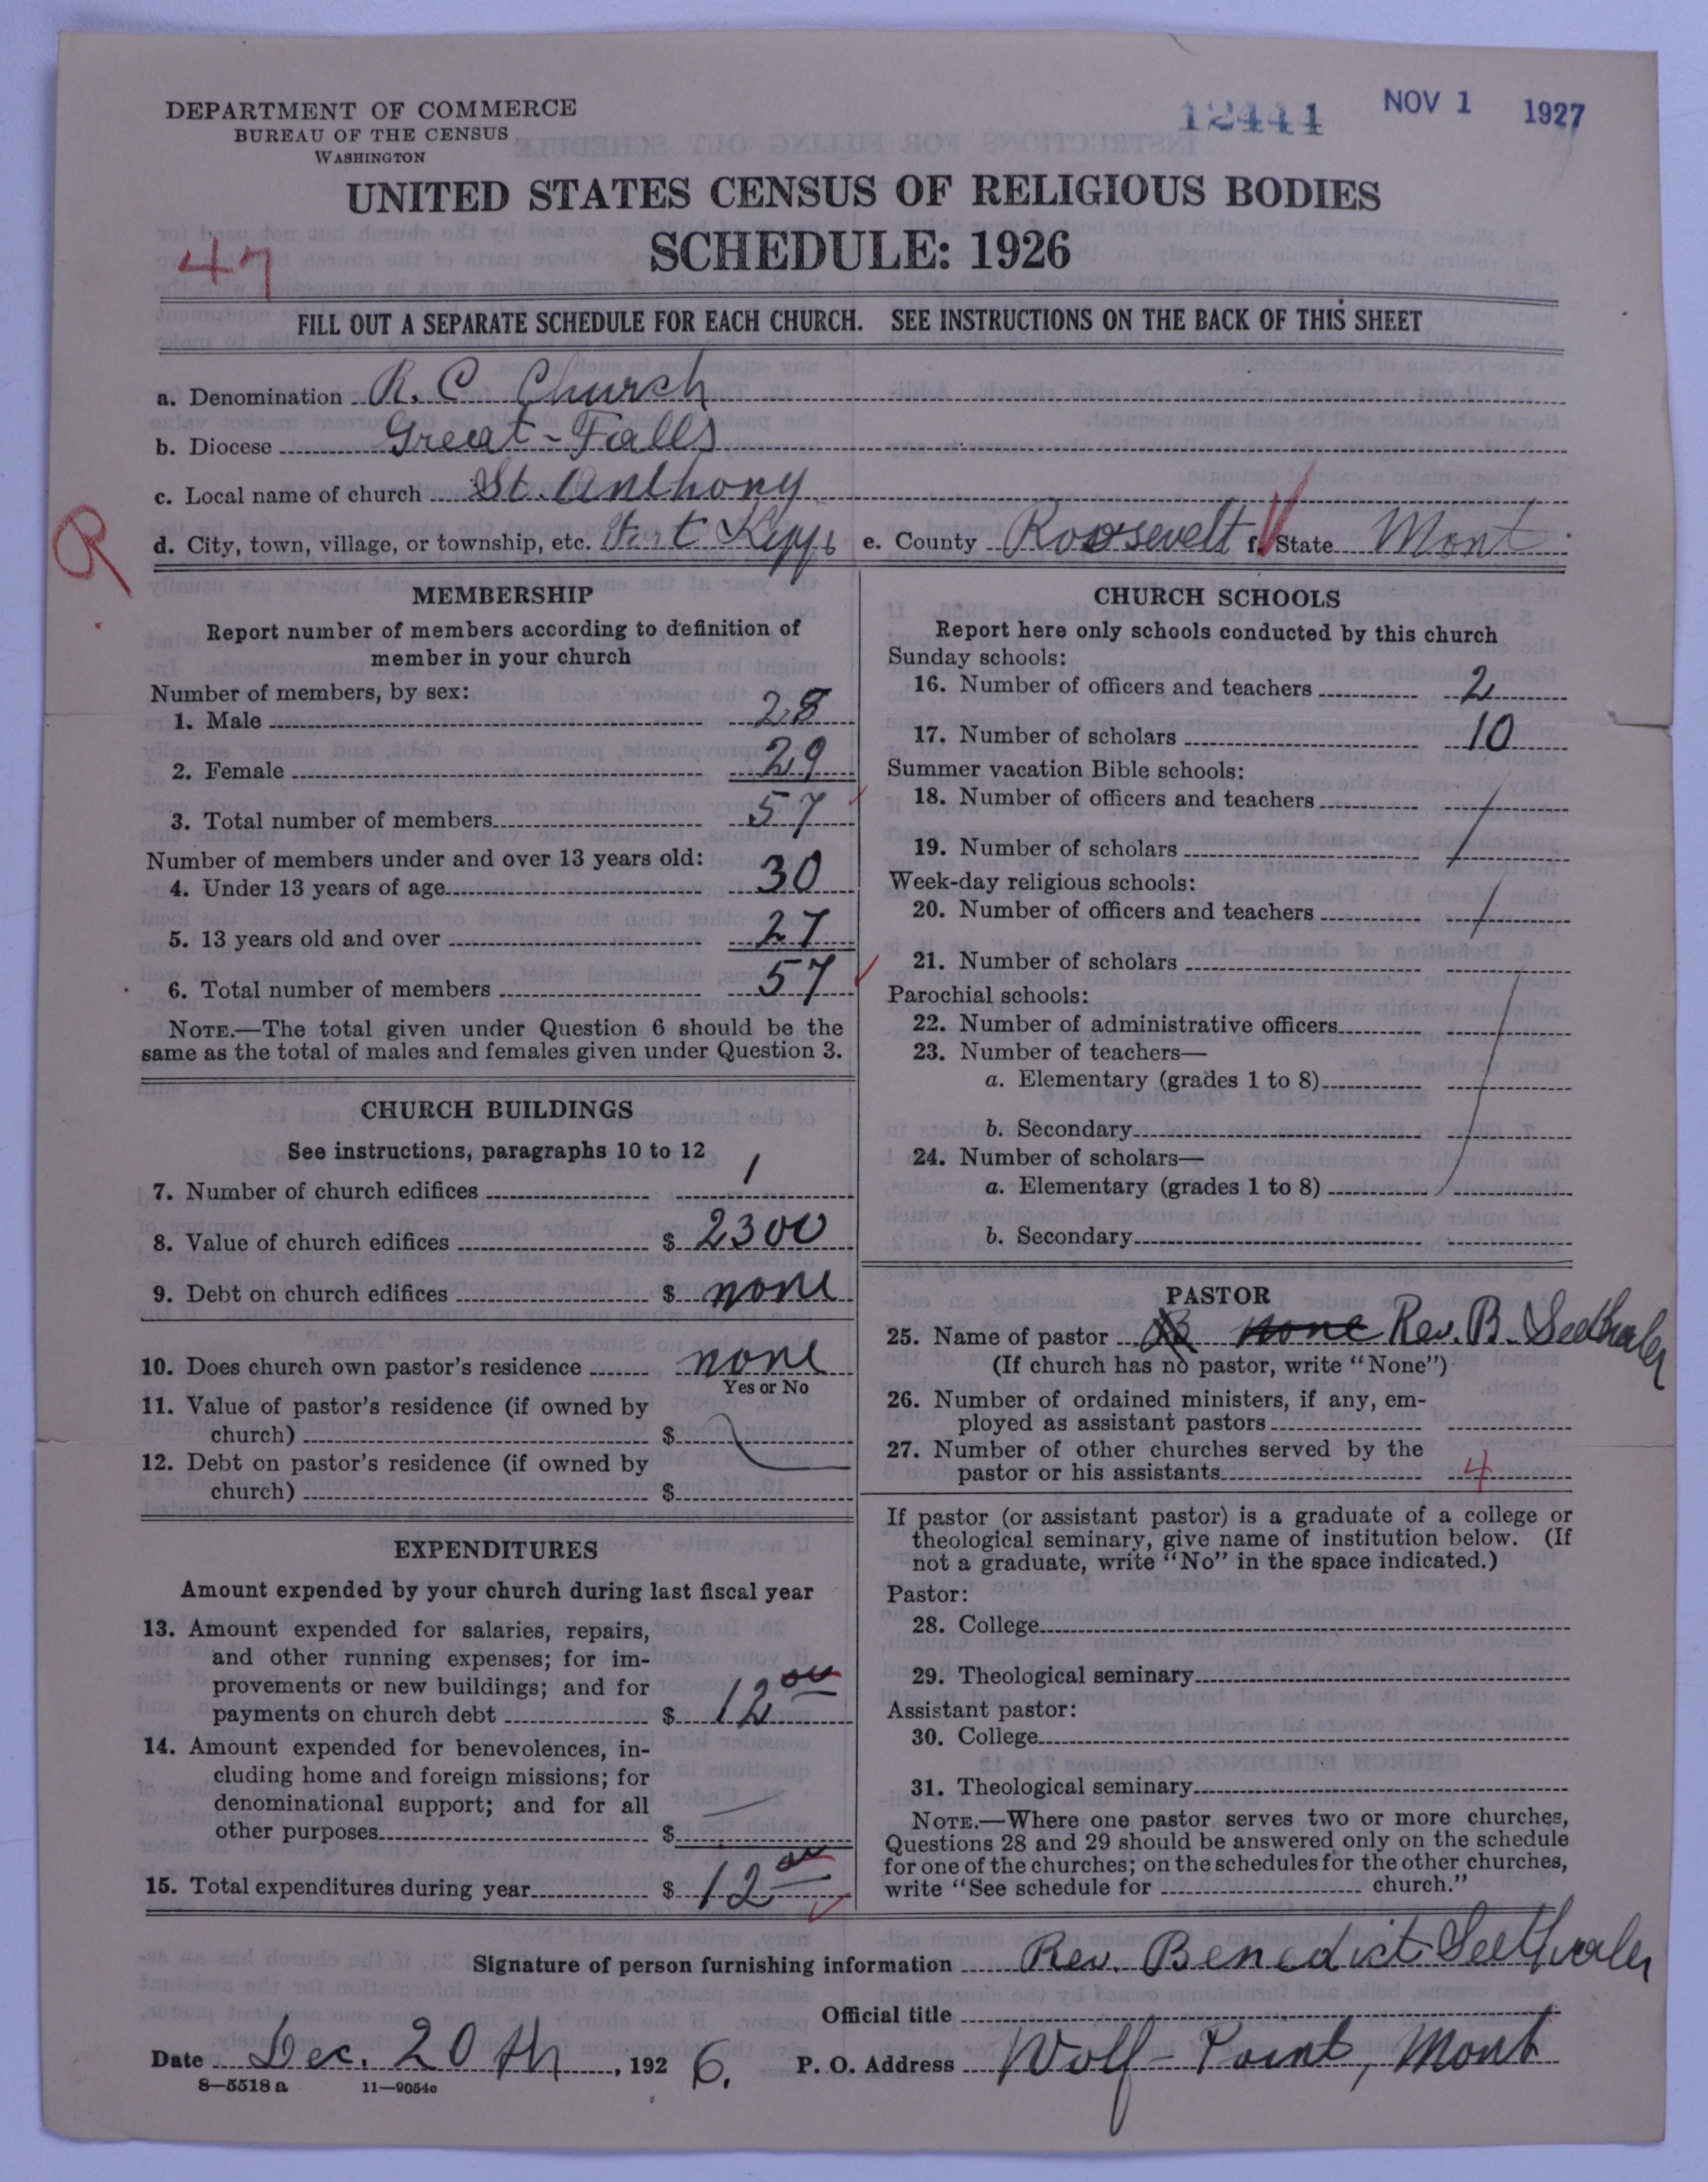 DEPARTMENT OF COMMERCE
BUREAU OF THE CENSUS
WASHINGTON
12444 NOV 1 1927
UNITED STATES CENSUS OF RELIGIOUS BODIES
SCHEDULE: 1926
47
FILL OUT A SEPARATE SCHEDULE FOR EACH CHURCH. SEE INSTRUCTIONS ON THE BACK OF THIS SHEET
a. Denomination R. C Church
b. Diocese Great-Falls
c. Local name of church St. Anthony
R
d. City, town, village, or township, etc. Fort Kipp e. County Roosevelt f. State Mont
MEMBERSHIP
Report number of members according to definition of
member in your church
Number of members, by sex:
1. Male 28
2. Female 29
3. Total number of members 57
Number of members under and over 13 years old:
4. Under 13 years of age 30
5. 13 years old and over 27
6. Total number of members 57
NOTE.—The total given under Question 6 should be the
same as the total of males and females given under Question 3.
CHURCH BUILDINGS
See instructions, paragraphs 10 to 12
7. Number of church edifices 1
8. Value of church edifices $ 2300
9. Debt on church edifices $ none
10. Does church own pastor's residence none
Yes or No
11. Value of pastor's residence (if owned by
church) $
12. Debt on pastor's residence (if owned by
church) $
EXPENDITURES
Amount expended by your church during last fiscal year
13. Amount expended for salaries, repairs,
and other running expenses; for im-
provements or new buildings; and for
payments on church debt $ 12 00
14. Amount expended for benevolences, in-
cluding home and foreign missions; for
denominational support; and for all
other purposes $ —
15. Total expenditures during year $ 12 00
CHURCH SCHOOLS
Report here only schools conducted by this church
Sunday schools:
16. Number of officers and teachers 2
17. Number of scholars 10
Summer vacation Bible schools:
18. Number of officers and teachers
19. Number of scholars
Week-day religious schools:
20. Number of officers and teachers
21. Number of scholars
Parochial schools:
22. Number of administrative officers
23. Number of teachers—
a. Elementary (grades 1 to 8)
b. Secondary
24. Number of scholars—
a. Elementary (grades 1 to 8)
b. Secondary
PASTOR
25. Name of pastor none Rev. B. Seethaler
(If church has no pastor, write "None")
26. Number of ordained ministers, if any, em-
ployed as assistant pastors
27. Number of other churches served by the
pastor or his assistants 4
If pastor (or assistant pastor) is a graduate of a college or
theological seminary, give name of institution below. (If
not a graduate, write "No" in the space indicated.)
Pastor:
28. College
29. Theological seminary
Assistant pastor:
30. College
31. Theological seminary
NOTE.—Where one pastor serves two or more churches,
Questions 28 and 29 should be answered only on the schedule
for one of the churches; on the schedules for the other churches,
write "See schedule for church."
Signature of person furnishing information Rev. Benedict Seethaler
Official title
Date Dec. 20th, 1926. P. O. Address Wolf-Point, Mont
8—5518 a 11—9054c